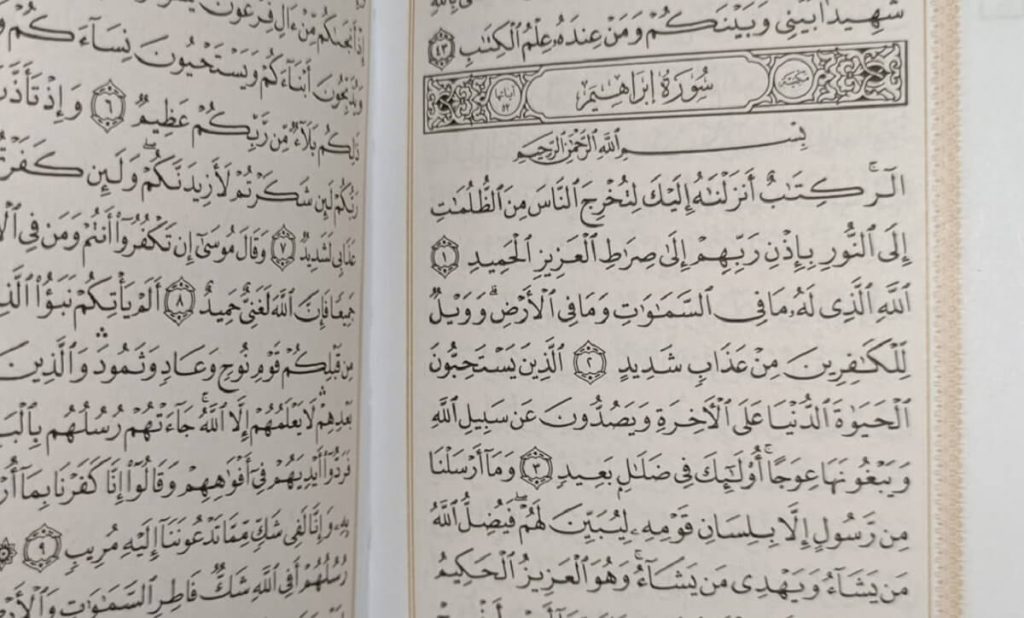 شَهِيدًۢا بَيْنِي وَبَيْنَكُمْ وَمَنْ عِندَهُۥ عِلْمُ ٱلْكِتَٰبِ ٤٣
مكية سُورَةُ إِبْرَاهِيمَ آياتها ٥٢
بِسْمِ ٱللَّهِ ٱلرَّحْمَٰنِ ٱلرَّحِيمِ
الٓرۚ كِتَٰبٌ أَنزَلْنَٰهُ إِلَيْكَ لِتُخْرِجَ ٱلنَّاسَ مِنَ ٱلظُّلُمَٰتِ
إِلَى ٱلنُّورِ بِإِذْنِ رَبِّهِمْ إِلَىٰ صِرَٰطِ ٱلْعَزِيزِ ٱلْحَمِيدِ ١
ٱللَّهِ ٱلَّذِى لَهُۥ مَا فِى ٱلسَّمَٰوَٰتِ وَمَا فِى ٱلْأَرْضِۗ وَوَيْلٌ
لِّلْكَٰفِرِينَ مِنْ عَذَابٍ شَدِيدٍ ٢ ٱلَّذِينَ يَسْتَحِبُّونَ
ٱلْحَيَوٰةَ ٱلدُّنْيَا عَلَى ٱلْءَاخِرَةِ وَيَصُدُّونَ عَن سَبِيلِ ٱللَّهِ
وَيَبْغُونَهَا عِوَجًاۚ أُو۟لَٰٓئِكَ فِى ضَلَٰلٍۭ بَعِيدٍ ٣ وَمَآ أَرْسَلْنَا
مِن رَّسُولٍ إِلَّا بِلِسَانِ قَوْمِهِۦ لِيُبَيِّنَ لَهُمْۖ فَيُضِلُّ ٱللَّهُ
مَن يَشَآءُ وَيَهْدِى مَن يَشَآءُۚ وَهُوَ ٱلْعَزِيزُ ٱلْحَكِيمُ
إِذْ أَنجَىٰكُم مِّنْ ءَالِ فِرْعَوْنَ
وَيُذَبِّحُونَ أَبْنَآءَكُمْ وَيَسْتَحْيُونَ نِسَآءَكُمْ
ذَٰلِكُم بَلَآءٌ مِّن رَّبِّكُمْ عَظِيمٌ ٦ وَإِذْ
رَبُّكُمْ لَئِن شَكَرْتُمْ لَأَزِيدَنَّكُمْۖ وَلَئِن
عَذَابِى لَشَدِيدٌ ٧ وَقَالَ مُوسَىٰٓ إِن تَكْفُرُوٓا۟ أَنتُمْ وَمَن فِى
جَمِيعًا فَإِنَّ ٱللَّهَ لَغَنِىٌّ حَمِيدٌ ٨ أَلَمْ يَأْتِكُمْ نَبَؤُا۟
مِن قَبْلِكُمْ قَوْمِ نُوحٍ وَعَادٍ وَثَمُودَۛ وَٱلَّذِينَ
بَعْدِهِمْۛ لَا يَعْلَمُهُمْ إِلَّا ٱللَّهُۚ جَآءَتْهُمْ رُسُلُهُم
فَرَدُّوٓا۟ أَيْدِيَهُمْ فِىٓ أَفْوَٰهِهِمْ وَقَالُوٓا۟ إِنَّا كَفَرْنَا بِمَآ
بِهِۦ وَإِنَّا لَفِى شَكٍّ مِّمَّا تَدْعُونَنَآ إِلَيْهِ مُرِيبٍ ٩
رُسُلُهُمْ أَفِى ٱللَّهِ شَكٌّ فَاطِرِ ٱلسَّمَٰوَٰتِ